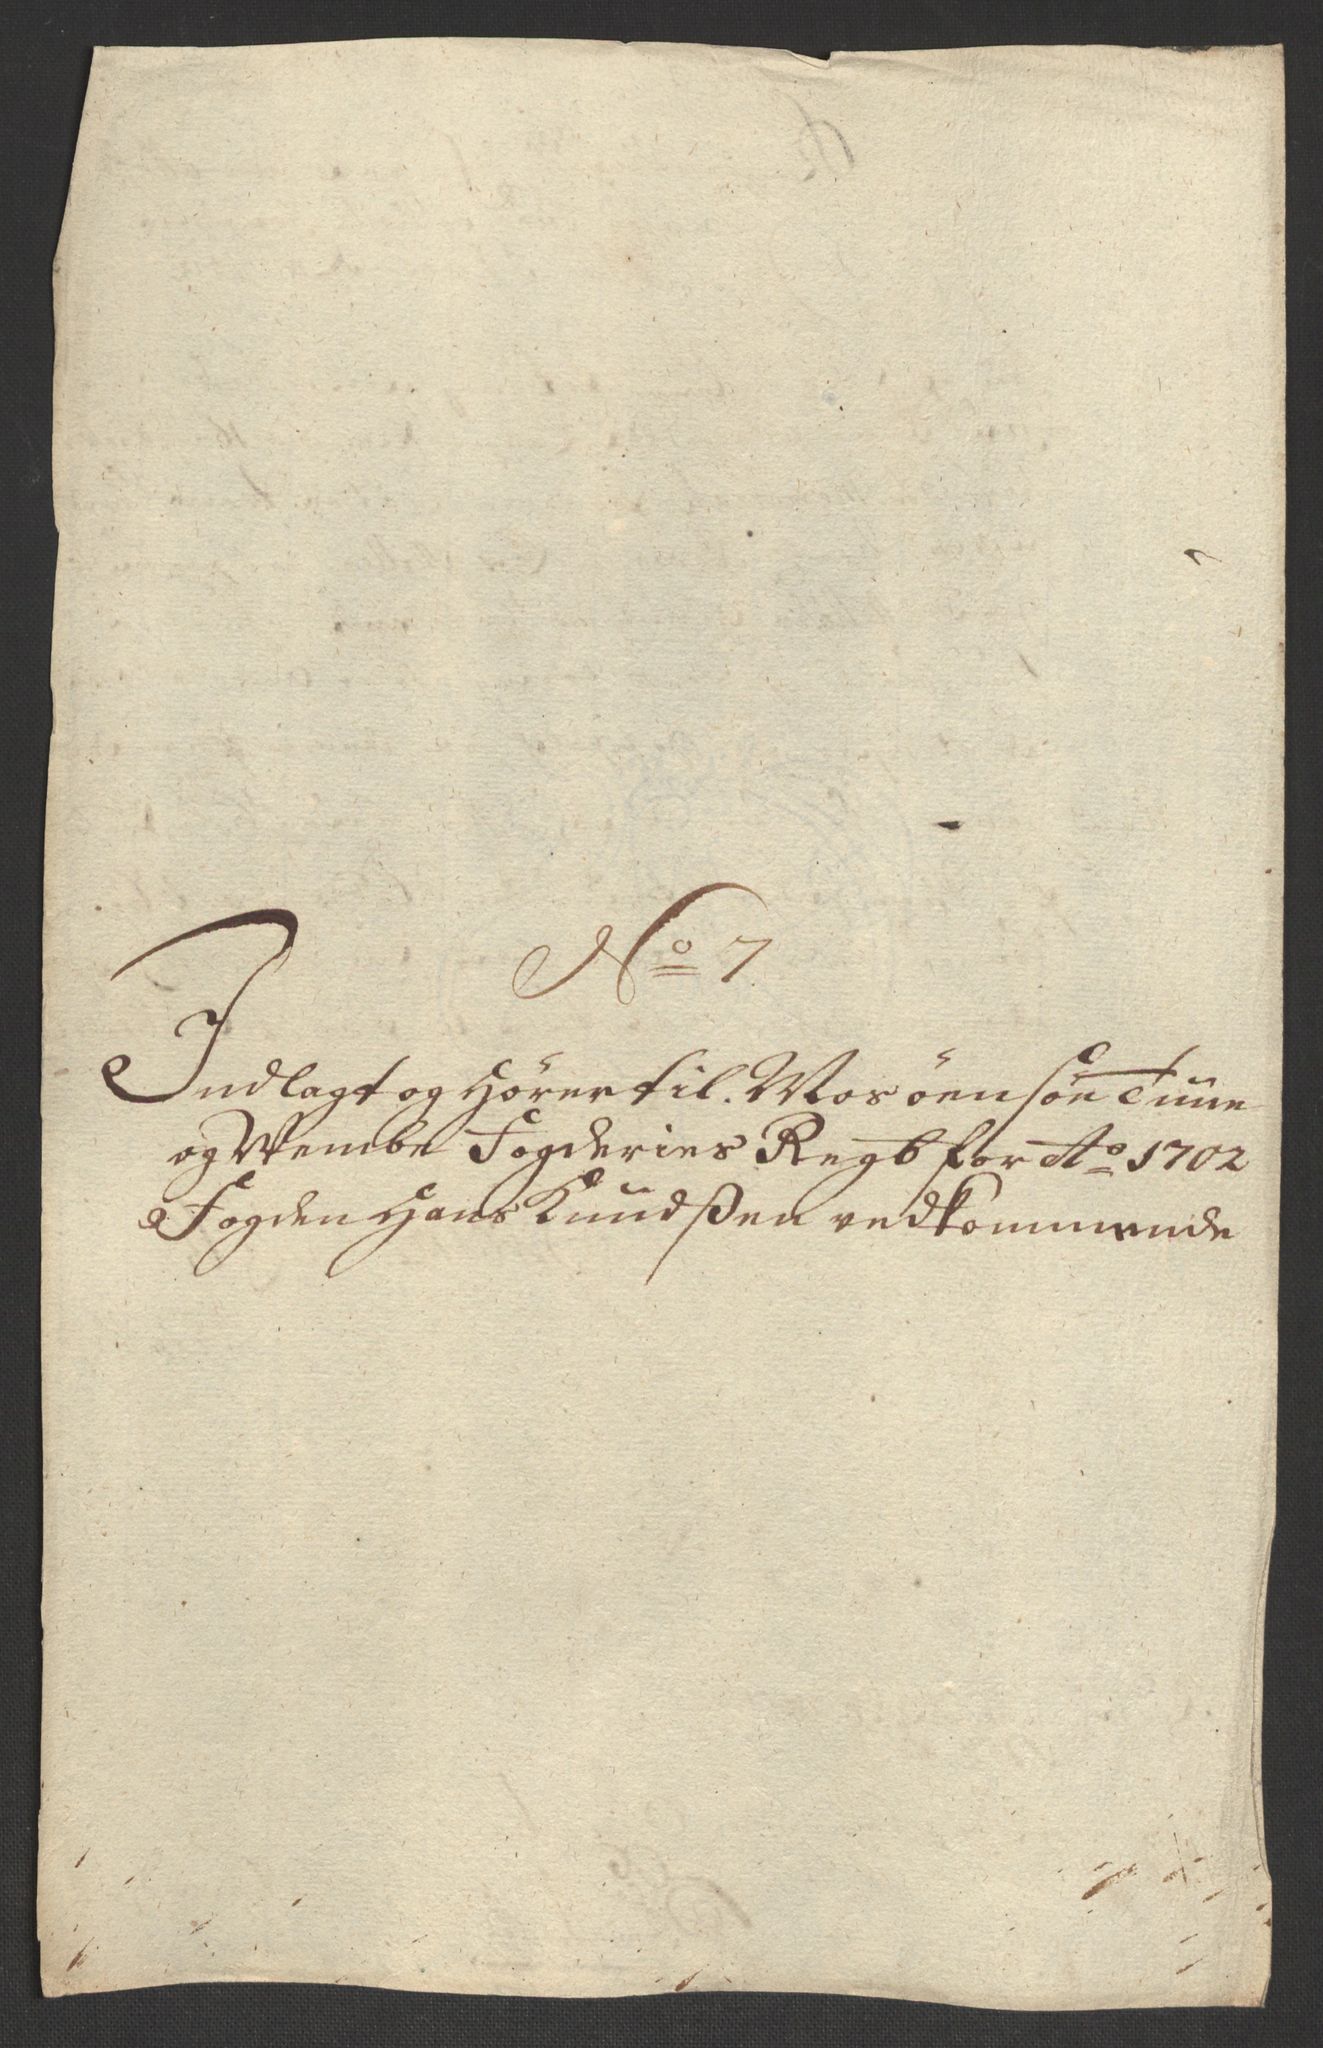 No 7
Indlagt og hører til. Mos øensøe Tune
og Wembe Fogderies Regb for Ao 1702
Fogden Hans Knudßen vedkommende